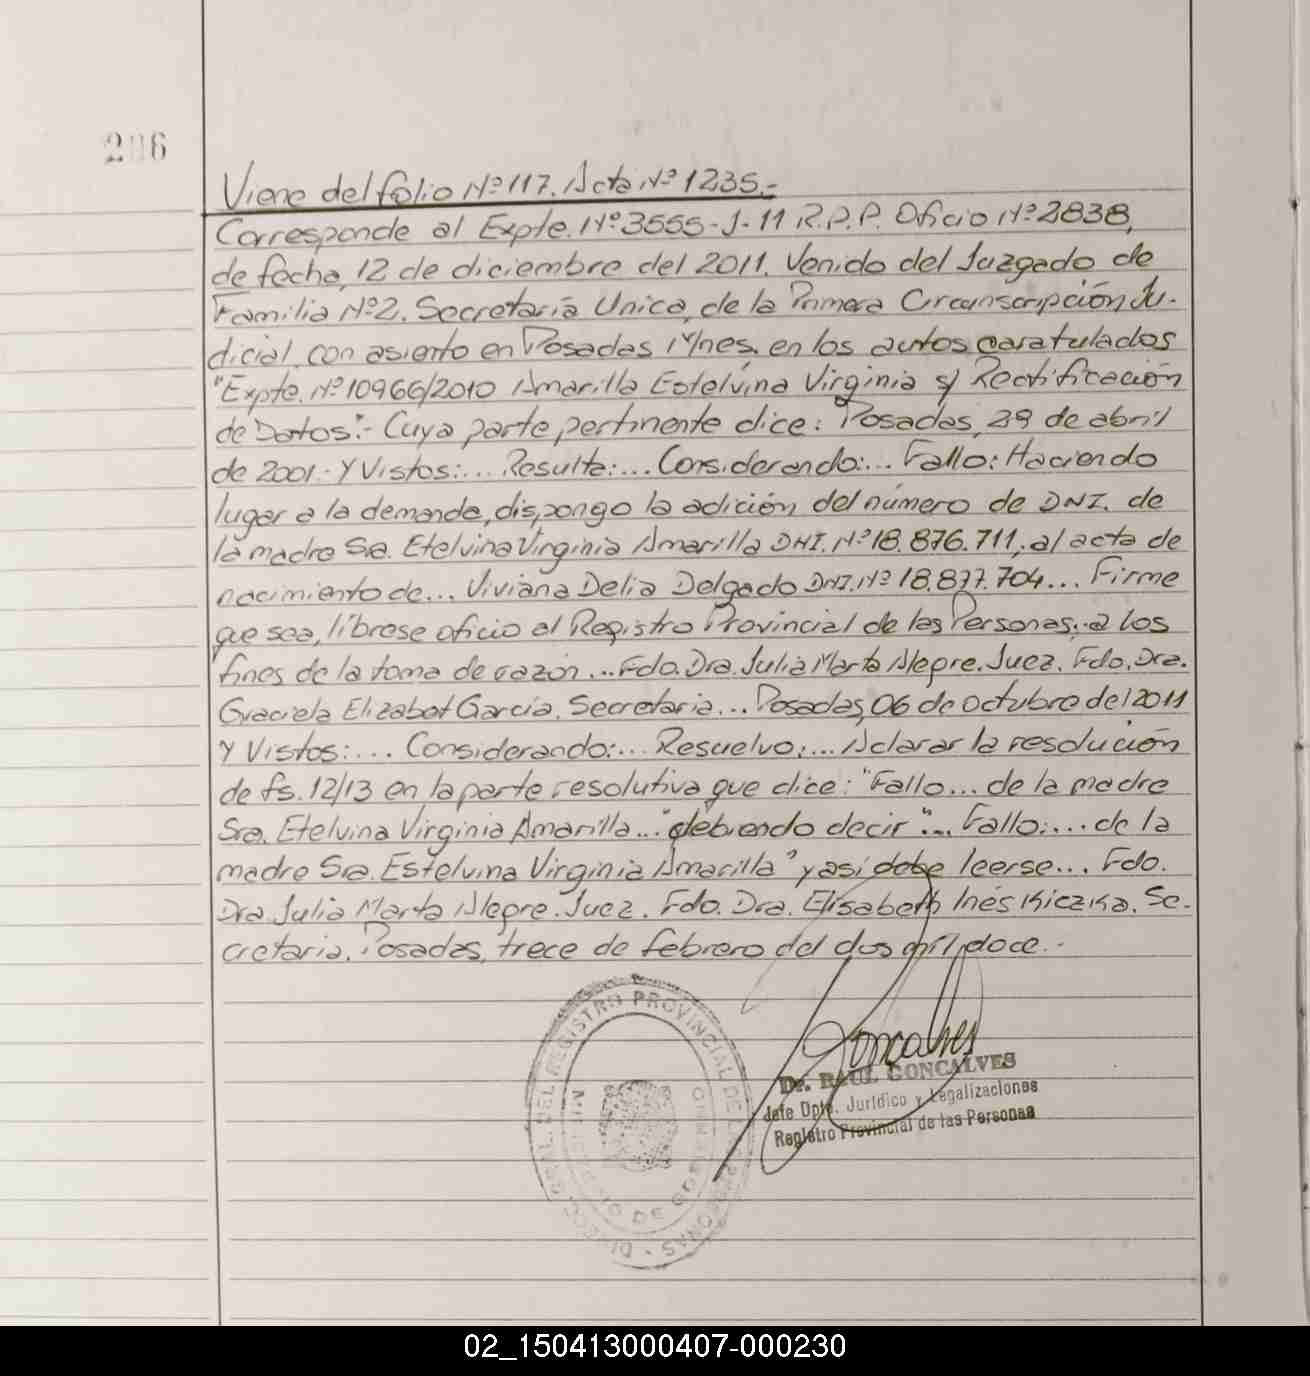 206
Viene del folio Nº 117. Acta Nº 1235.-
Corresponde al Expte. Nº 3555-J-11 R.P.P. Oficio Nº 2838,
de fecha, 12 de diciembre del 2011. Venido del Juzgado de
Familia Nº 2. Secretaría Unica, de la Primera Circunscripción Ju-
dicial, con asiento en Posadas Mnes. en los autos caratulados
"Expte. Nº 10966/2010 Amarilla Estelvina Virginia s/ Rectificación
de Datos".- Cuya parte pertinente dice: Posadas, 29 de abril
de 2001.- Y Vistos:... Resulta:... Considerando:... Fallo: Haciendo
lugar a la demanda, dispongo la adición del número de DNI. de
la madre Sra. Etelvina Virginia Amarilla DNI. Nº 18.876.711, al acta de
nacimiento de... Viviana Delia Delgado DNI. Nº 18.877.704... Firme
que sea, líbrese oficio al Registro Provincial de las Personas, a los
fines de la toma de razón... Fdo. Dra. Julia Marta Alegre. Juez. Fdo. Dra.
Graciela Elizabet García. Secretaria... Posadas, 06 de octubre del 2011
Y Vistos:... Considerando:... Resuelvo:... Aclarar la resolución
de fs. 12/13 en la parte resolutiva que dice: "Fallo... de la madre
Sra. Etelvina Virginia Amarilla..." debiendo decir "... Fallo:... de la
madre Sra. Estelvina Virginia Amarilla" y así debe leerse... Fdo.
Dra. Julia Marta Alegre. Juez. Fdo. Dra. Elisabeth Inés Kiczka. Se-
cretaria. Posadas, trece de febrero del dos mil doce.-
DIRECC. GRAL. DEL REGISTRO PROVINCIAL DE LAS PERSONAS
Goncalves
Dr. RAUL GONCALVES
Jefe Dpto. Jurídico y Legalizaciones
Registro Provincial de las Personas
02_150413000407-000230